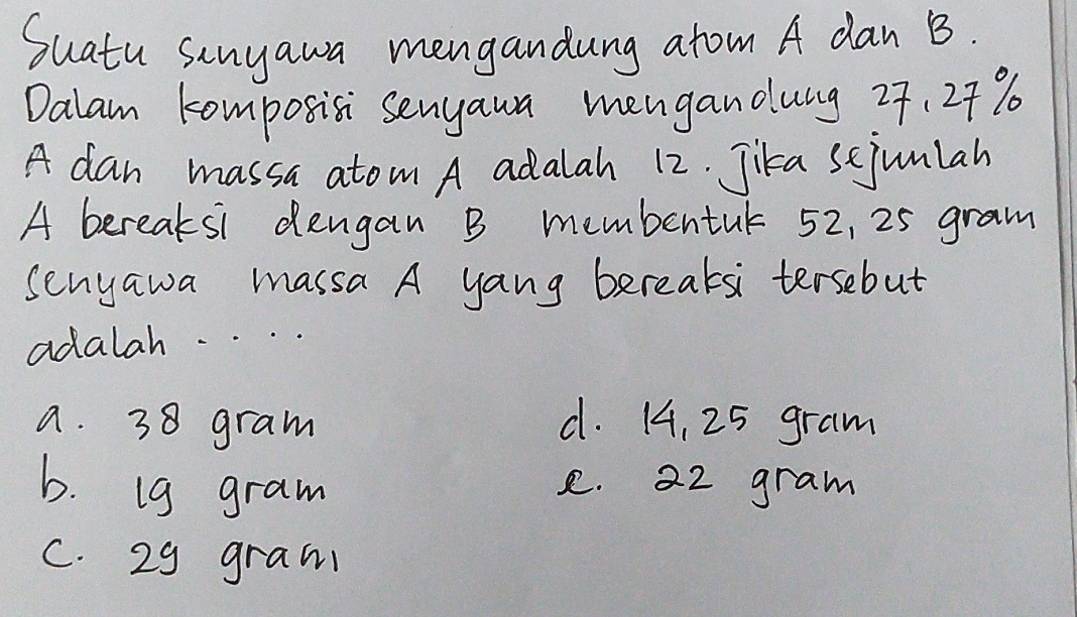 Suatu senyawa mengandung atom A dan B.
Dalam komposisi senyawa mengandung 27,27%
A dan massa atom A adalah 12. Jika sejumlah
A bereaksi dengan B membentuk 52,25 gram
senyawa massa A yang bereaksi tersebut
adalah .....
a. 38 gram
b. 19 gram
c. 29 gram
d. 14,25 gram
e. 22 gram